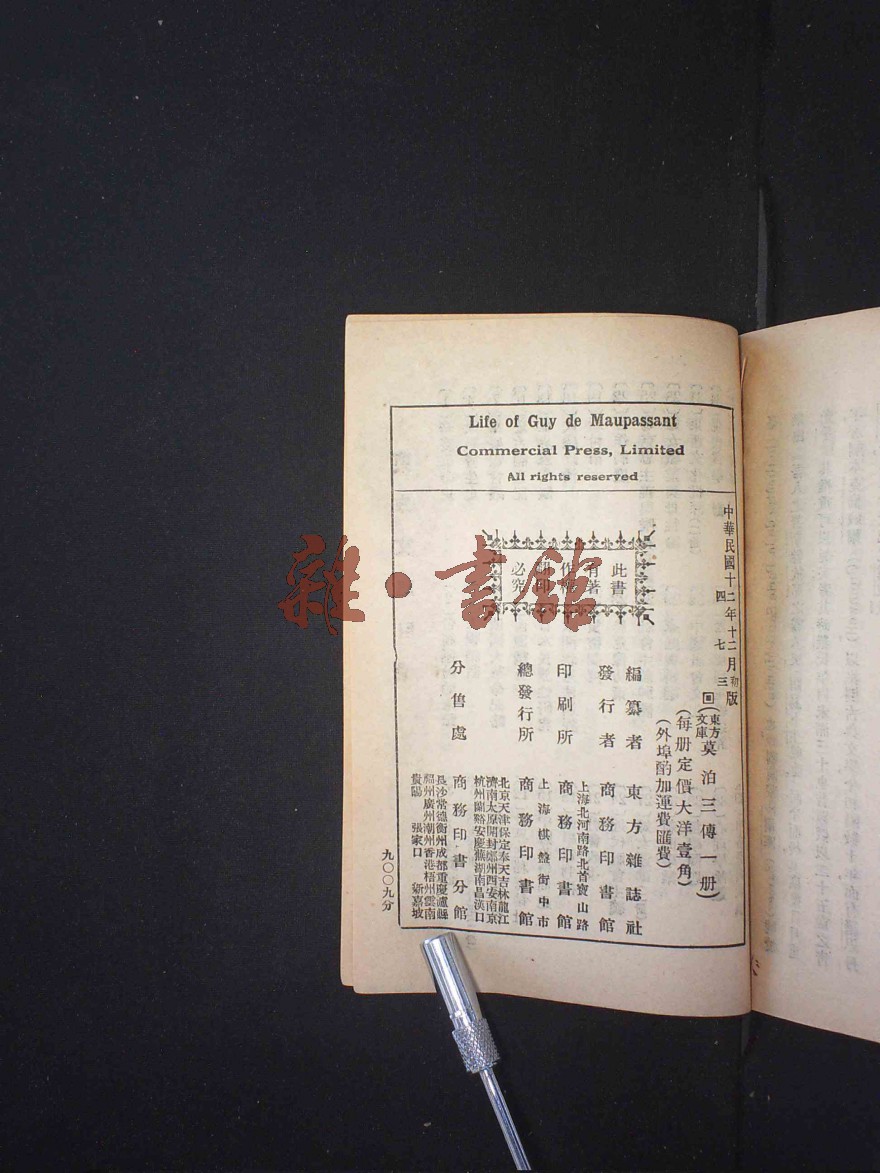 Life of Guy de Maupassant
Commercial Press, Limited
All rights reserved
中華民國十二年十二月初版
四 七 三
回(東方文庫)莫泊三傳一册)
(每册定價大洋壹角)
(外埠酌加運費匯費)
此書
有著
作權
翻印
必究
編纂者 東方雜誌社
發行者 商務印書館
上海北河南路北首寶山路
印刷所 商務印書館
上海棋盤街中市
總發行所 商務印書館
北京天津保定奉天吉林龍江
濟南太原開封鄭州西安南京
杭州蘭谿安慶蕪湖南昌漢口
分售處 商務印書分館
長沙常德衡州成都重慶瀘縣
福州廣州潮州香港梧州雲南
貴陽 張家口 新嘉坡
九〇〇九分
雜·書館